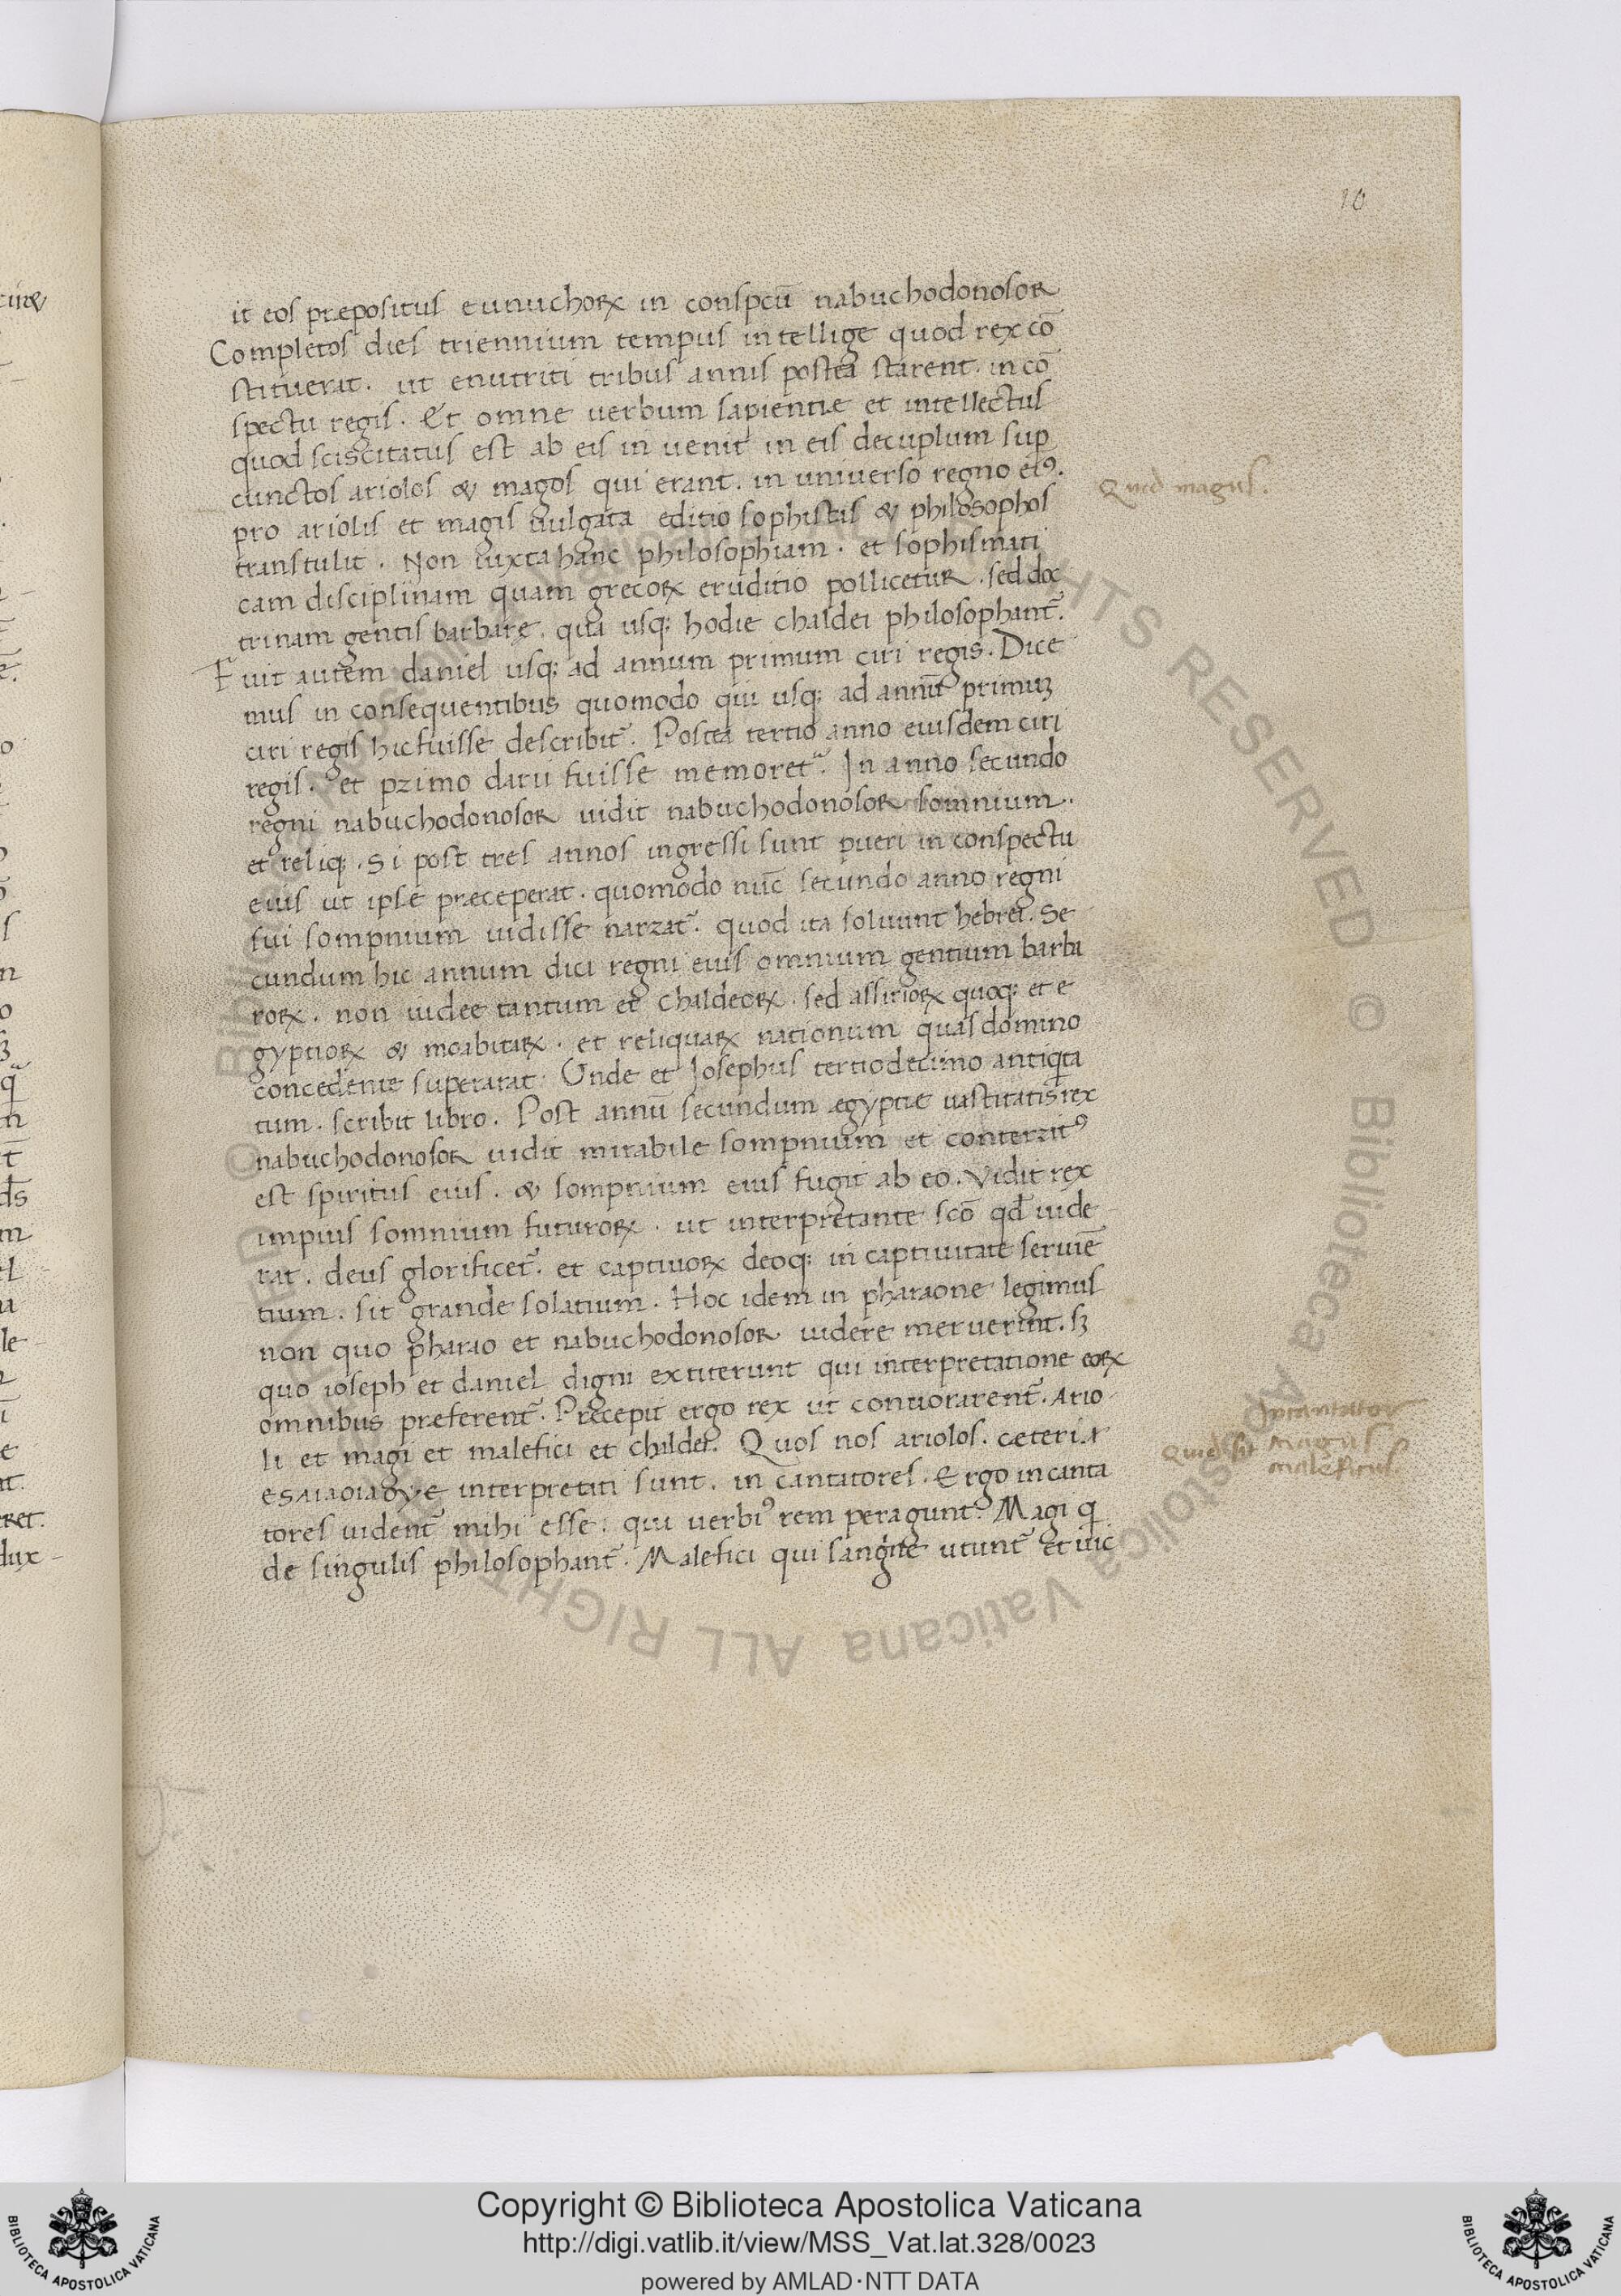 10
it eos prepositus eunuchoꝝ in conspcū nabuchodonosor
Completos dies triennium tempus intellige quod rex cō
stituerat. ut enutriti tribus annis postea starent. in cō
spectu regis. Et omne uerbum sapientie et intellectus
quod sciscitatus est ab eis in uenit in eis decuplum sup
cunctos ariolos & magos qui erant. in universo regno eiꝰ.
Quid magus.
pro ariolis et magis uulgata editio sophistas & philosophos
transtulit. Non iuxta hanc philosophiam. et sophismati
cam disciplinam quam grecoꝝ eruditio pollicetur. sed doc
trinam gentis barbare. qua usq; hodie chaldei philosophant᷑.
Fuit autem daniel usq; ad annum primum ciri regis. Dice
mus in consequentibus quomodo qui usq; ad annū primuꝫ
ciri regis hic fuisse describit᷑. Postea tertio anno eiusdem ciri
regis. et primo darii fuisse memoret᷑. In anno secundo
regni nabuchodonosor uidit nabuchodonosor somnium.
et reliq;. Si post tres annos ingressi sunt pueri in conspectu
eius ut ipse preceperat. quomodo nūc secundo anno regni
sui sompnium uidisse narrat᷑. quod ita soluunt hebrei. Se
cundum hic annum dici regni eius omnium gentium barba
roꝝ. non iudee tantum et chaldeoꝝ. sed assirioꝝ quoq; et e
gyptioꝝ & moabitaꝝ. et reliquaꝝ nationum quas domino
concedente superarat. Unde et Iosephus tertiodecimo antiqita
tum. scribit libro. Post annū secundum egyptie uastitatis rex
nabuchodonosor uidit mirabile sompnium et conterritꝰ
est spiritus eius. & sompnium eius fugit ab eo. Vidit rex
impius somnium futuroꝝ. ut interpretante scō qđ uide
rat. deus glorificet᷑. et captiuoꝝ deoq; in captiuitate seruiē
tium. sit grande solatium. Hoc idem in pharaone legimus
non quo pharao et nabuchodonosor uidere meruerint. sꝫ
quo ioseph et daniel digni extiterunt qui interpretatione eoꝝ
omnibus preferent᷑. Precepit ergo rex ut conuocarent᷑. Ario
li et magi et malefici et chaldei. Quos nos ariolos. ceteri
interpretati sunt. in cantatores. Ergo incanta
tores uident᷑ mihi esse. qui uerbiꝰ rem peragunt. Magi q
de singulis philosophant᷑. Malefici qui sangne utunt᷑ et uic
Incantator
Quid sit magus
maleficus
Copyright © Biblioteca Apostolica Vaticana
http://digi.vatlib.it/view/MSS_Vat.lat.328/0023
powered by AMLAD·NTT DATA
BIBLIOTECA APOSTOLICA VATICANA
BIBLIOTECA APOSTOLICA VATICANA
© Biblioteca Apostolica Vaticana ALL RIGHTS RESERVED © Biblioteca Apostolica Vaticana ALL RIGHTS RESERVED